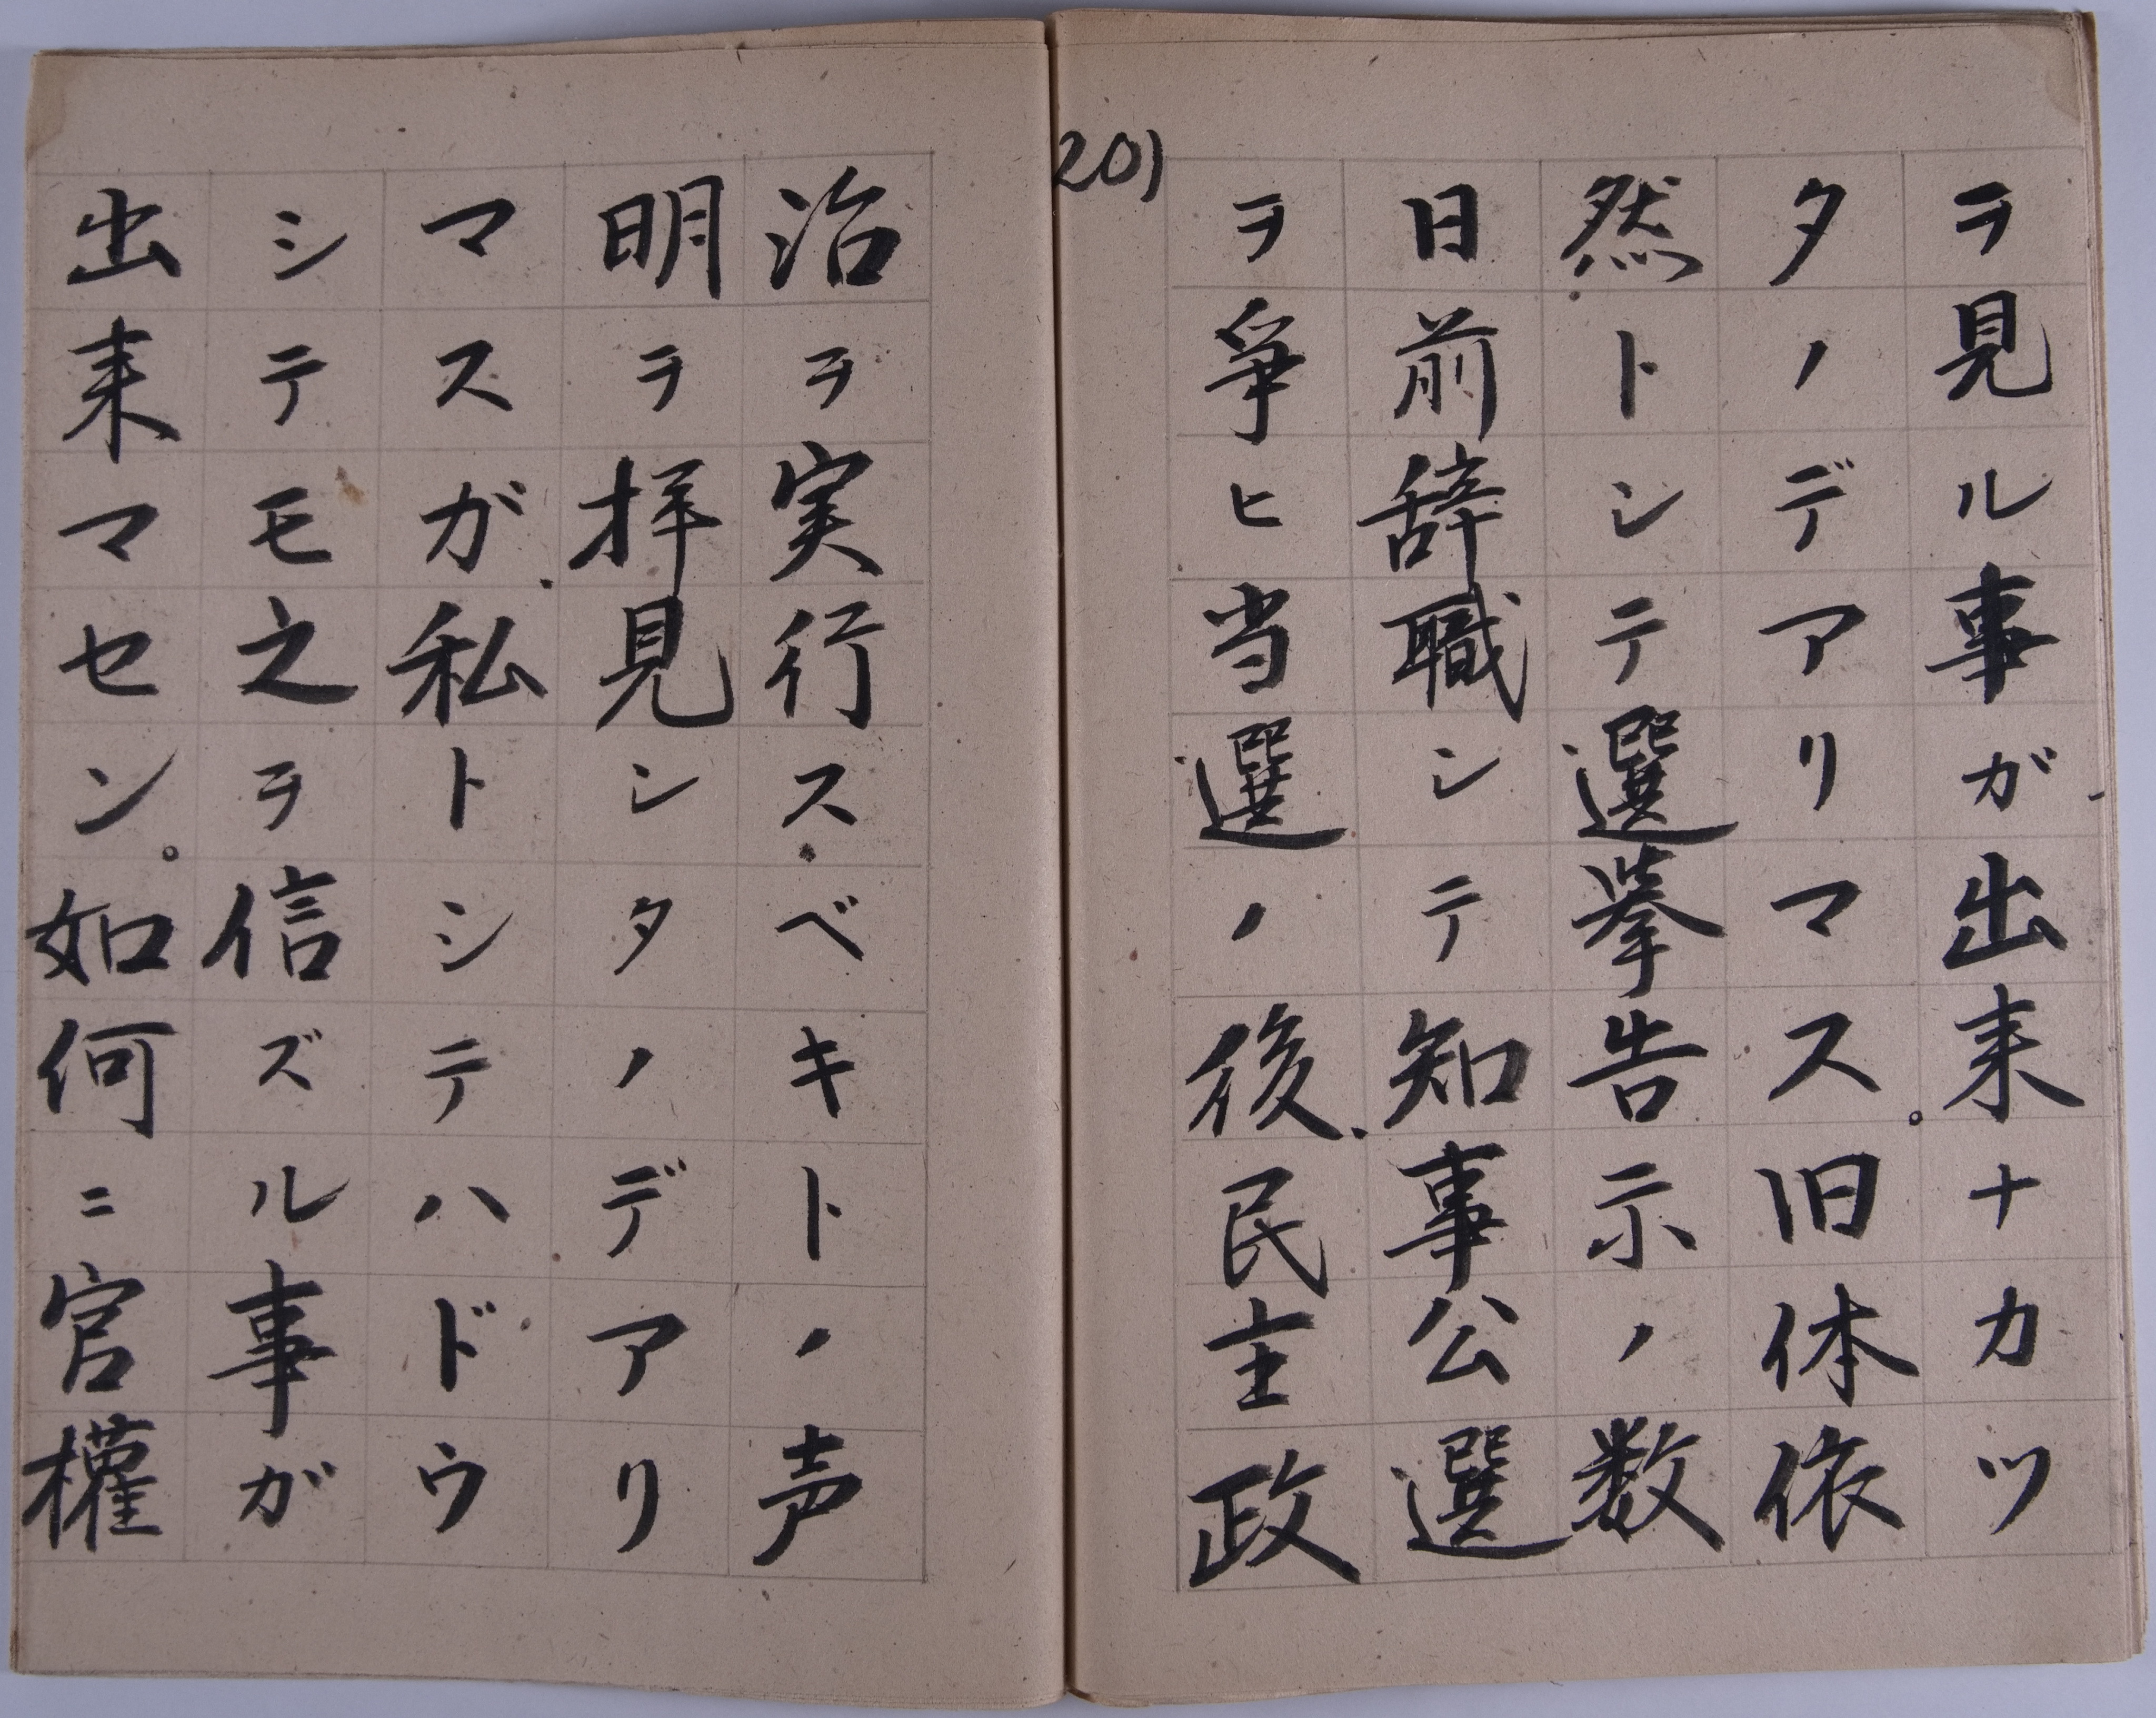 ヲ見ル事ガ出来ナカツ
タノデアリマス。旧体依
然トシテ選挙告示ノ数
日前辞職シテ知事公選
ヲ爭ヒ当選ノ後、民主政
201
治ヲ実行スベキトノ声
明ヲ拝見シタノデアリ
マスガ、私トシテハドウ
シテモ之ヲ信ズル事ガ
出来マセン。如何ニ官權